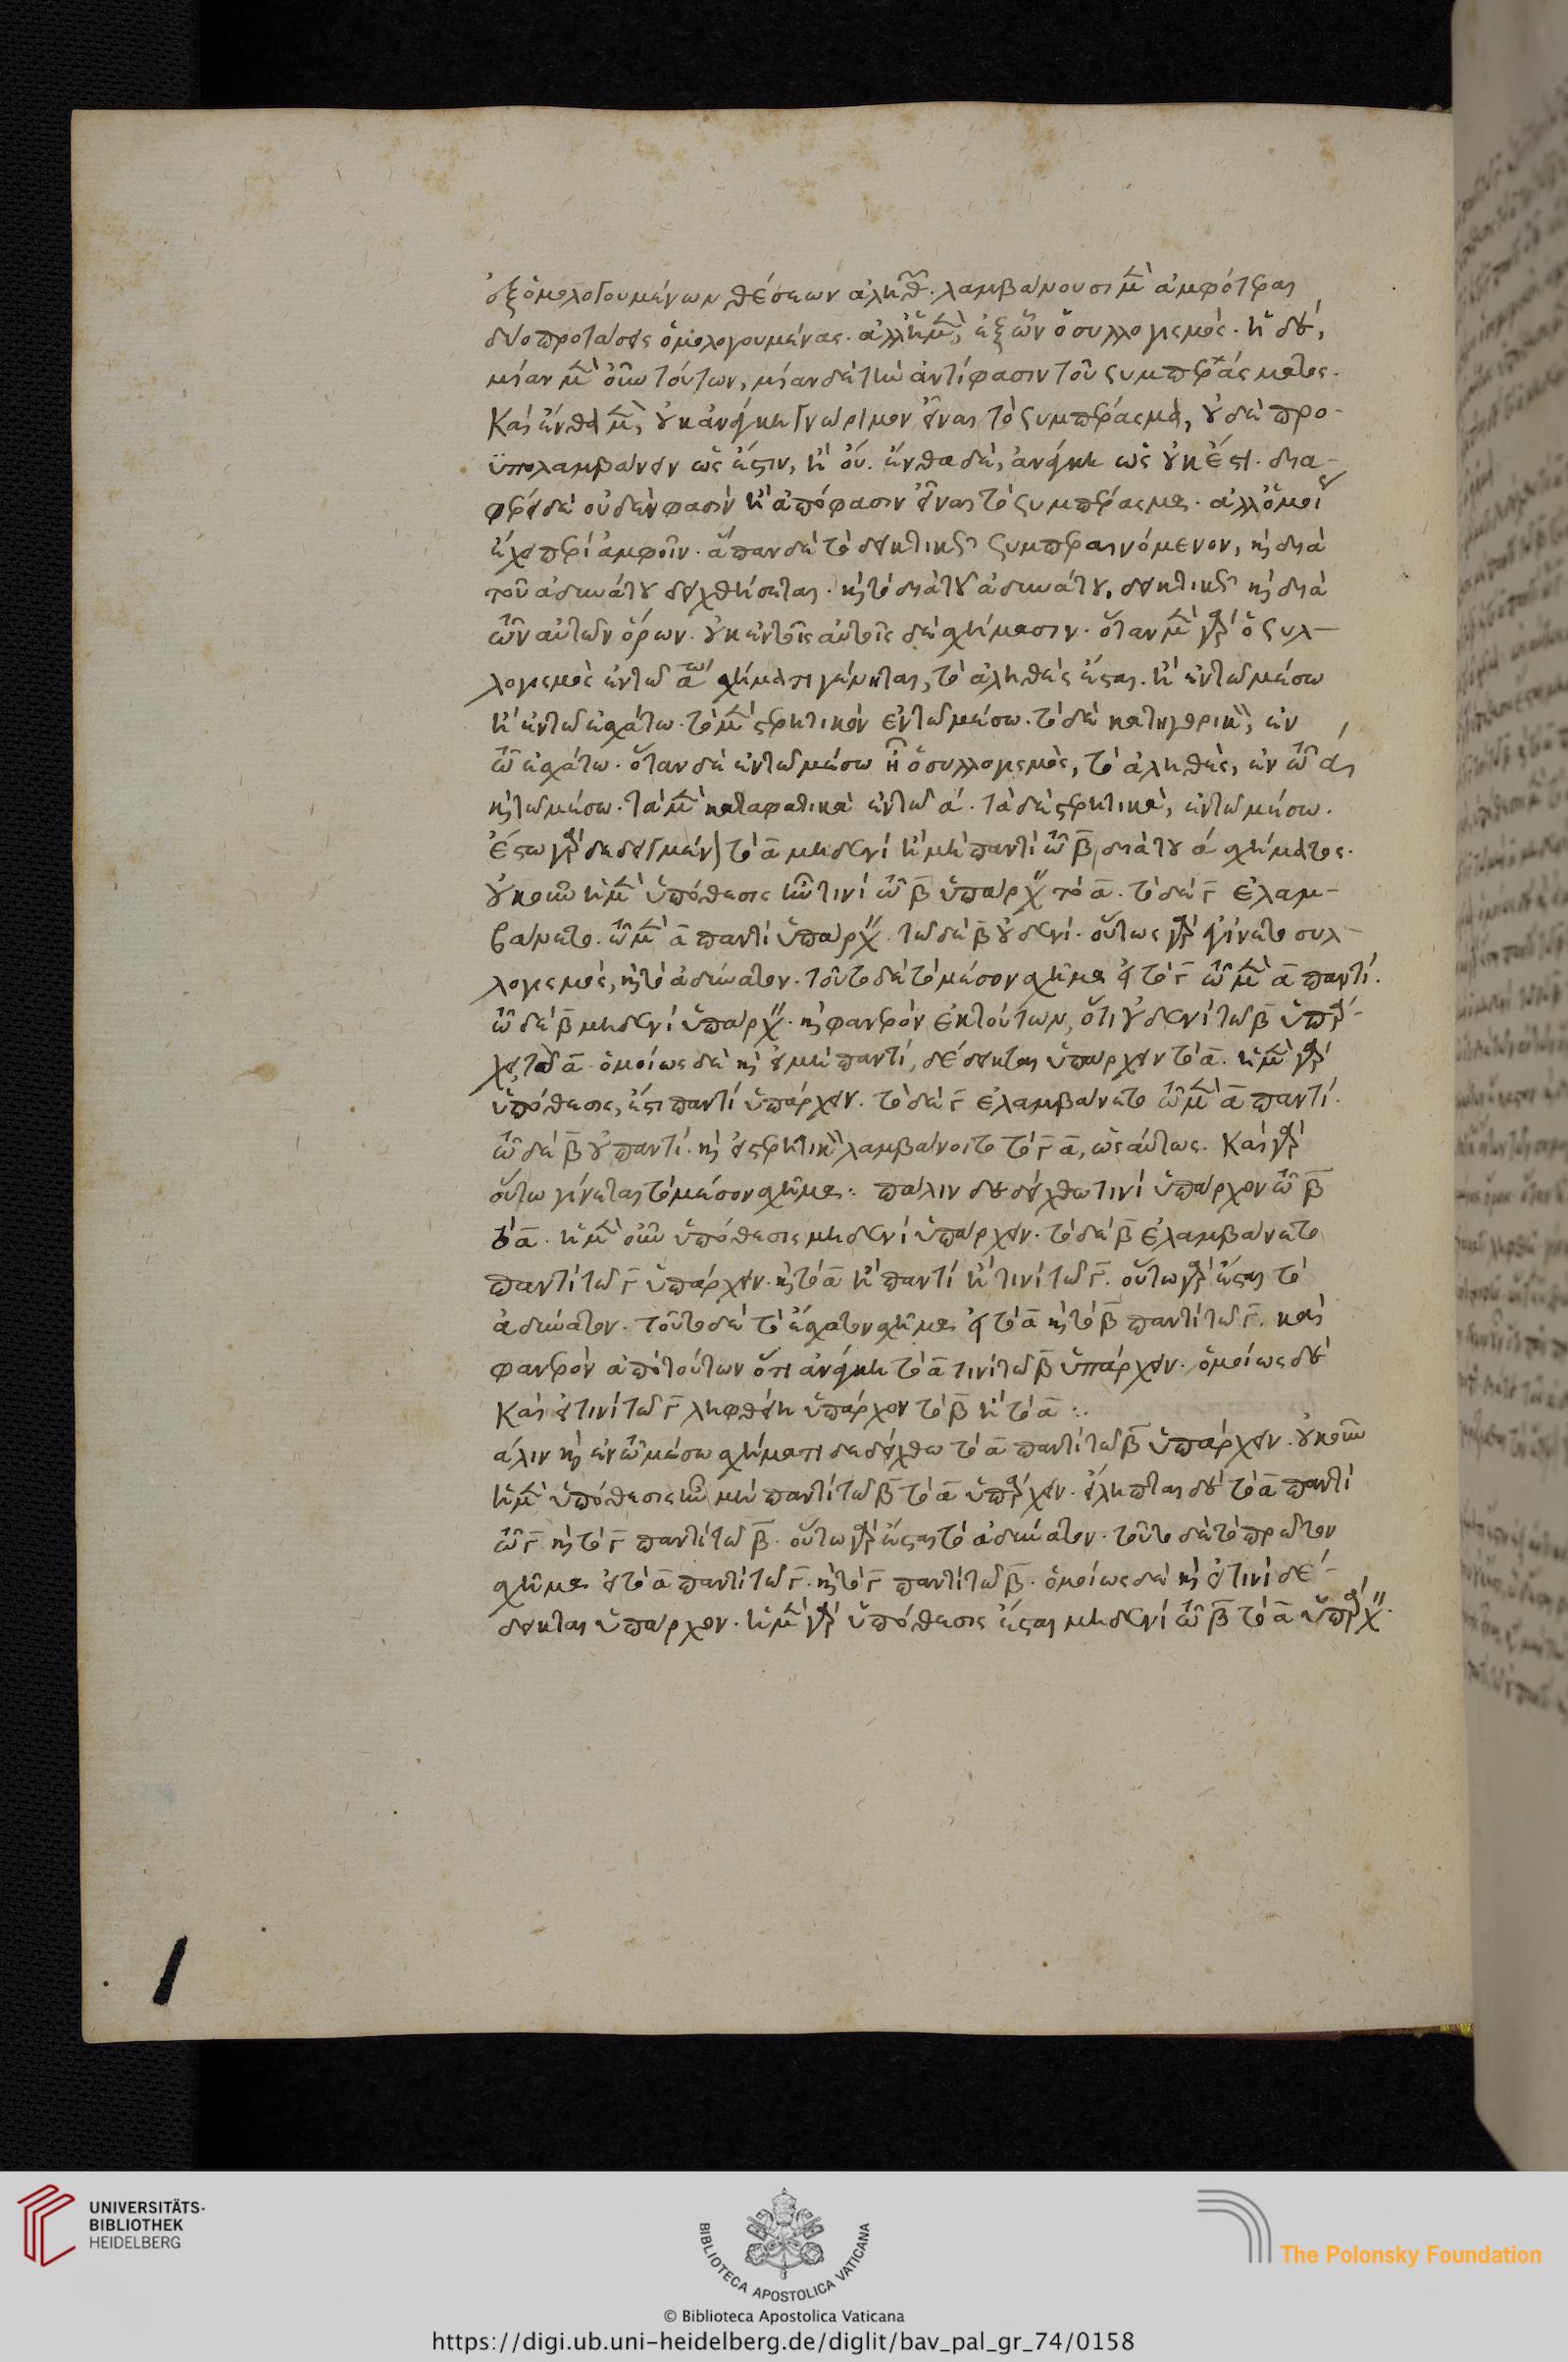 ἐξ ὁμολογουμένων θέσεων ἀληθ. λαμβάνουσι μὲν ἀμφότεραι
δύο προτάσεις ὁμολογουμένας. ἀλλ' ἡ μὲν, ἐξ ὧν ὁ συλλογισμός. ἡ δὲ,
μίαν μὲν οὖν τούτων, μίαν δὲ τὴν ἀντίφασιν τοῦ συμπεράσματος.
Καὶ ἔνθα μὲν, οὐκ ἀνάγκη γνώριμον εἶναι τὸ συμπέρασμα, οὐδὲ προ-
ϋπολαμβάνειν ὡς ἔστιν, ἢ οὐ. ἔνθα δὲ, ἀνάγκη ὡς οὐκ ἔστι. δια-
φέρει δὲ οὐδὲν φάσιν ἢ ἀπόφασιν εἶναι τὸ συμπέρασμα. ἀλλ' ὁμοίως
ἔχει περὶ ἀμφοῖν. ἅπαν δὲ τὸ δεικτικῶς συμπεραινόμενον, καὶ διὰ
τοῦ ἀδυνάτου δειχθήσεται. καὶ τὸ διὰ τοῦ ἀδυνάτου, δεικτικῶς καὶ διὰ
τῶν αὐτῶν ὅρων. οὐκ ἐν τοῖς αὐτοῖς δὲ σχήμασιν. ὅταν μὲν γὰρ ὁ συλ-
λογισμὸς ἐν τῷ αω σχήματι γένηται, τὸ ἀληθὲς ἔσται. ἢ ἐν τῷ μέσω
ἢ ἐν τῷ ἐσχάτω. τὸ μὲν στερητικὸν ἐν τῷ μέσω. τὸ δὲ κατηγορικὸν, ἐν
τῷ ἐσχάτω. ὅταν δὲ ἐν τῷ μέσω ἦ ὁ συλλογισμὸς, τὸ ἀληθὲς, ἐν τῷ α
καὶ τῷ μέσω. τὰ μὲν καταφατικὰ ἐν τῷ α. τὰ δὲ στερητικὰ, ἐν τῷ μέσω.
Ἔστω γὰρ δεδειγμένον τὸ α μηδενὶ ἢ μὴ παντὶ τῷ β διὰ τοῦ α σχήματος.
οὐκοῦν ἡ μὲν ὑπόθεσις ἦν τινὶ τῷ β ὑπάρχειν τὸ α. τὸ δὲ γ ἐλαμ-
βάνετο. τῷ μὲν α παντὶ ὑπάρχειν. τῷ δὲ β οὐδενί. οὕτως γὰρ ἐγίνετο συλ-
λογισμὸς, καὶ τὸ ἀδύνατον. τοῦτο δὲ τὸ μέσον σχῆμα εἰ τὸ γ τῷ μὲν α παντί.
τῷ δὲ β μηδενὶ ὑπάρχειν. καὶ φανερὸν ἐκ τούτων, ὅτι οὐδενὶ τῷ β ὑπάρ-
χει τὸ α ὁμοίως δὲ καὶ εἰ μὴ παντὶ, δέδεικται ὑπάρχειν τὸ α. ἡ μὲν γὰρ
ὑπόθεσις, ἐστι παντὶ ὑπάρχειν. τὸ δὲ γ ἐλαμβάνετο τῷ μὲν α παντί.
τῷ δὲ β οὐ παντί. καὶ εἰ στερητικὸν λαμβάνοιτο τὸ γ α, ὡσαύτως. Καὶ γὰρ
οὕτω γίνεται τὸ μέσον σχῆμα : πάλιν δεδείχθω τινὶ ὑπάρχον τῷ β
τὸ α. ἡ μὲν οὖν ὑπόθεσις μηδενὶ ὑπάρχειν. τὸ δὲ β ἐλαμβάνετο
παντὶ τῷ γ ὑπάρχειν. καὶ τὸ α ἢ παντὶ ἢ τινὶ τῷ γ. οὕτω γὰρ ἔσται τὸ
ἀδύνατον. τοῦτο δὲ τὸ ἔσχατον σχῆμα εἰ τὸ α καὶ τὸ β παντὶ τῷ γ. καὶ
φανερὸν ἀπὸ τούτων ὅτι ἀνάγκη τὸ α τινὶ τῷ β ὑπάρχειν. ὁμοίως δὲ
Καὶ εἰ τινὶ τῷ γ ληφθείη ὑπάρχον τὸ β ἢ τὸ α :.
άλιν καὶ ἐν τῷ μέσω σχήματι δεδείχθω τὸ α παντὶ τῷ β ὑπάρχειν. οὐκοῦν
ἡ μὲν ὑπόθεσις ἦν μὴ παντὶ τῷ β τὸ α ὑπάρχειν. εἴληπται δὲ τὸ α παντὶ
τῷ γ καὶ τὸ γ παντὶ τῷ β. οὕτω γὰρ ἔσται τὸ ἀδύνατον. τοῦτο δὲ τὸ πρῶτον
σχῆμα εἰ τὸ α παντὶ τῷ γ. καὶ τὸ γ παντὶ τῷ β. ὁμοίως δὲ καὶ εἰ τινὶ δέ-
δεικται ὑπάρχον. ἡ μὲν γὰρ ὑπόθεσις ἔσται μηδενὶ τῷ β τὸ α ὑπάρχειν.
UNIVERSITÄTS-
BIBLIOTHEK
HEIDELBERG
BIBLIOTECA APOSTOLICA VATICANA
The Polonsky Foundation
© Biblioteca Apostolica Vaticana
https://digi.ub.uni-heidelberg.de/diglit/bav_pal_gr_74/0158